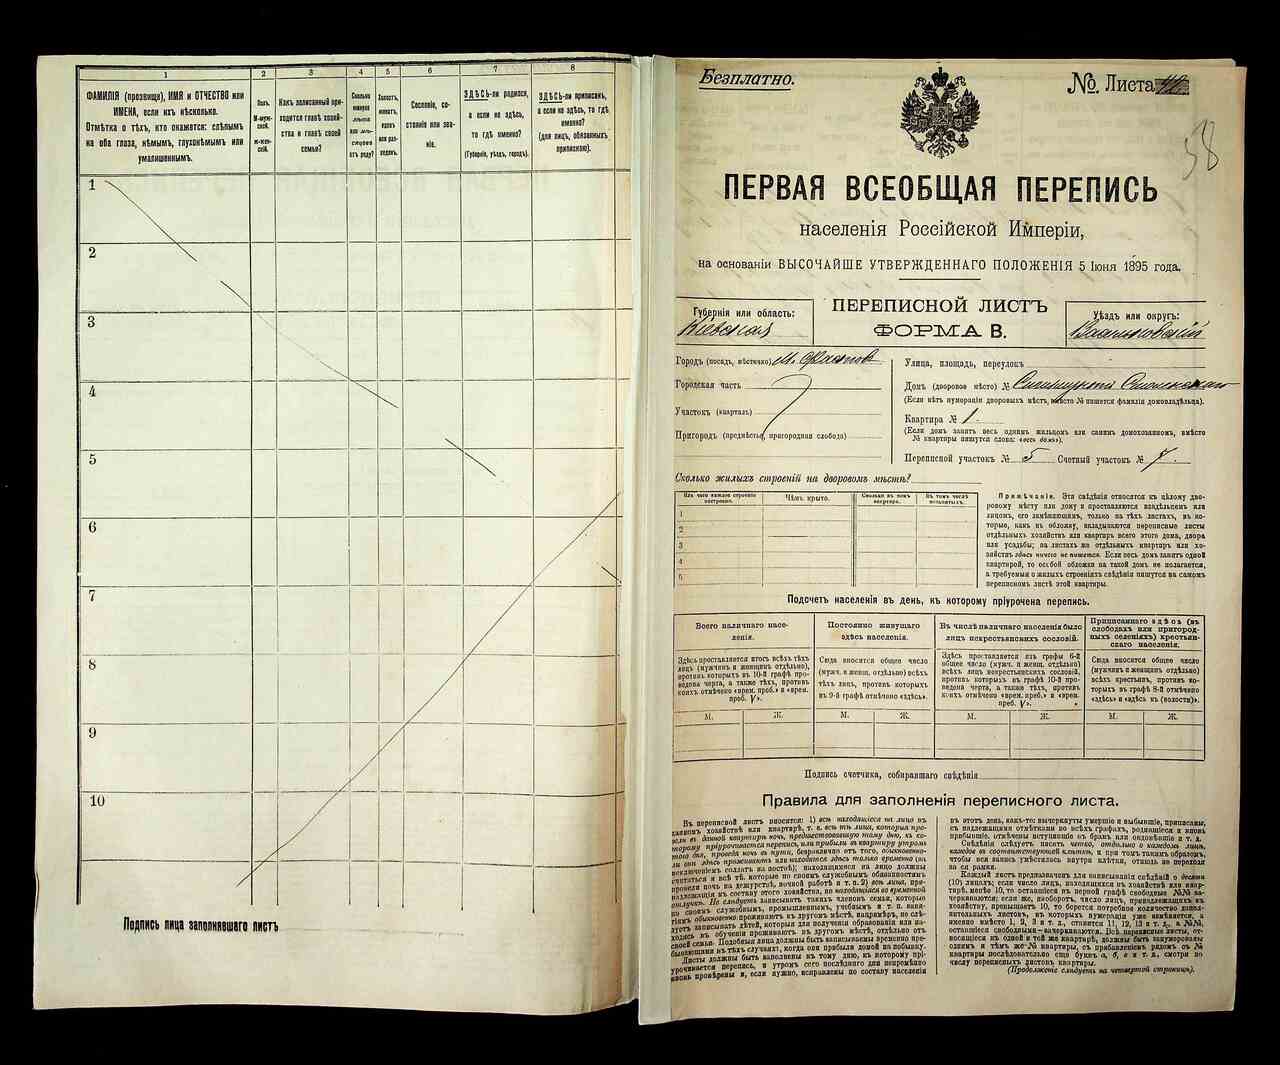 1 2 3 4 5 6 7 8
ФАМИЛІЯ (прозвище), ИМЯ и ОТЧЕСТВО или
ИМЕНА, если ихъ нѣсколько.
Отмѣтка о тѣхъ, кто окажется: слѣпымъ
на оба глаза, нѣмымъ, глухонѣмымъ или
умалишеннымъ.
Полъ.
М-муж-
ской.
Ж-жен-
скій.
Какъ записанный при-
ходится главѣ хозяй-
ства и главѣ своей
семьи?
Сколько
минуло
лѣтъ
или мѣ-
сяцевъ
отъ роду?
Холостъ,
женатъ,
вдовъ
или раз-
веденъ.
Сословіе, со-
стояніе или зва-
ніе.
ЗДѢСЬ-ли родился,
а если не здѣсь,
то гдѣ именно?
(Губернія, уѣздъ, городъ).
ЗДѢСЬ-ли приписанъ,
а если не здѣсь, то гдѣ
именно?
(для лицъ, обязанныхъ
припискою).
1
2
3
4
5
6
7
8
9
10
Подпись лица заполнявшаго листъ
Безплатно.
№ Листа
38
ПЕРВАЯ ВСЕОБЩАЯ ПЕРЕПИСЬ
населенія Россійской Имперіи,
на основаніи ВЫСОЧАЙШЕ УТВЕРЖДЕННАГО ПОЛОЖЕНІЯ 5 Іюня 1895 года.
Губернія или область:
Кіевская
ПЕРЕПИСНОЙ ЛИСТЪ
ФОРМА В.
Уѣздъ или округъ:
Васильковскій
Городъ (посадъ, мѣстечко) М. Фастовъ
Городская часть
Участокъ (кварталъ)
Пригородъ (предмѣстье, пригородная слобода)
Улица, площадь, переулокъ
Домъ (дворовое мѣсто) №
(Если нѣтъ нумераціи дворовыхъ мѣстъ, вмѣсто № пишется фамилія домовладѣльца).
Квартира № 1
(Если домъ занятъ весь однимъ жильцомъ или самимъ домохозяиномъ, вмѣсто
№ квартиры пишутся слова: «весь домъ»).
Переписной участокъ № 5 Счетный участокъ № 7.
Сколько жилыхъ строеній на дворовомъ мѣстѣ?
Изъ чего каждое строеніе
построено.
Чѣмъ крыто.
Сколько въ томъ
квартиръ.
Въ томъ числѣ
незанятыхъ.
1
2
3
4
5
Примѣчаніе. Эти свѣдѣнія относятся къ цѣлому дво-
ровому мѣсту или дому и проставляются владѣльцемъ или
лицомъ, его замѣняющимъ, только на тѣхъ листахъ, въ ко-
торые, какъ въ обложку, вкладываются переписные листы
отдѣльныхъ хозяйствъ или квартиръ всего этого дома, двора
или усадьбы; на листахъ же отдѣльныхъ квартиръ или хо-
зяйствъ здѣсь ничего не пишется. Если весь домъ занятъ одной
квартирой, то особой обложки на такой домъ не полагается,
а требуемыя о жилыхъ строеніяхъ свѣдѣнія пишутся на самомъ
переписномъ листѣ этой квартиры.
Подсчетъ населенія въ день, къ которому пріурочена перепись.
Всего наличнаго насе-
ленія.
Постоянно живущаго
здѣсь населенія.
Въ числѣ наличнаго населенія было
лицъ некрестьянскихъ сословій.
Приписаннаго здѣсь (въ
слободахъ или пригород-
ныхъ селеніяхъ) крестьян-
скаго населенія.
Здѣсь проставляется итогъ всѣхъ тѣхъ
лицъ (мужчинъ и женщинъ отдѣльно),
противъ которыхъ въ 10-й графѣ про-
ведена черта, а также тѣхъ, противъ
коихъ отмѣчено «врем. преб.» и «врем.
преб. V».
Сюда вносится общее число
(мужч. и женщ. отдѣльно) всѣхъ
тѣхъ лицъ, противъ которыхъ
въ 9-й графѣ отмѣчено «здѣсь».
Здѣсь проставляется изъ графы 6-й
общее число (мужч. и женщ. отдѣльно)
всѣхъ лицъ некрестьянскихъ сословій,
противъ которыхъ въ графѣ 10-й про-
ведена черта, а также тѣхъ, противъ
коихъ отмѣчено «врем. преб.» и «врем.
преб. V».
Сюда вносится общее число
(мужчинъ и женщинъ отдѣльно)
всѣхъ крестьянъ, противъ ко-
торыхъ въ графѣ 8-й отмѣчено
«здѣсь» и «здѣсь къ (волости)».
М. Ж. М. Ж. М. Ж. М. Ж.
Подпись счетчика, собиравшаго свѣдѣнія
Правила для заполненія переписного листа.
Въ переписной листъ вносятся: 1) всѣ находящіеся на лицо въ
данномъ хозяйствѣ или квартирѣ, т. е. всѣ тѣ лица, которыя про-
вели въ данной квартирѣ ночь, предшествовавшую тому дню, къ ко-
торому пріурочивается перепись, или прибыли въ квартиру утромъ
того дня, проведя ночь въ пути, безразлично отъ того, обыкновенно-
ли они здѣсь проживаютъ или находятся здѣсь только временно (за
исключеніемъ солдатъ на постоѣ); находящимися на лицо должны
считаться и всѣ тѣ, которые по своимъ служебнымъ обязанностямъ
провели ночь на дежурствѣ, ночной работѣ и т. п. 2) всѣ лица, при-
надлежащія къ составу этого хозяйства, но находящіеся во временной
отлучкѣ. Не слѣдуетъ записывать такихъ членовъ семьи, которые
по своимъ служебнымъ, промышленнымъ, учебнымъ и т. п. заня-
тіямъ обыкновенно проживаютъ въ другомъ мѣстѣ, напримѣръ, не слѣ-
дуетъ записывать дѣтей, которыя для полученія образованія или на-
ходясь въ обученіи проживаютъ въ другомъ мѣстѣ, отдѣльно отъ
своей семьи. Подобныя лица должны быть записываемы временно пре-
бывающими въ тѣхъ случаяхъ, когда они прибыли домой на побывку.
Листы должны быть заполнены къ тому дню, къ которому прі-
урочивается перепись, и утромъ сего послѣдняго дня непремѣнно
вновь провѣрены и, если нужно, исправлены по составу населенія
въ этотъ день, какъ-то: вычеркнуты умершіе и выбывшіе, приписаны,
съ надлежащими отмѣтками во всѣхъ графахъ, родившіеся и вновь
прибывшіе, отмѣчены вступившіе въ бракъ или овдовѣвшіе и т. д.
Свѣдѣнія слѣдуетъ писать четко, отдѣльно о каждомъ лицѣ,
каждое въ соотвѣтствующей клѣткѣ, и при томъ такимъ образомъ,
чтобы вся запись умѣстилась внутри клѣтки, отнюдь не переходя
за ея рамки.
Каждый листъ предназначенъ для записыванія свѣдѣній о десяти
(10) лицахъ; если число лицъ, находящихся въ хозяйствѣ или квар-
тирѣ, менѣе 10, то оставшіеся въ первой графѣ свободные №№ за-
черкиваются; если же, наоборотъ, число лицъ, принадлежащихъ къ
хозяйству, превышаетъ 10, то берется потребное количество допол-
нительныхъ листовъ, въ которыхъ нумерація уже измѣняется, а
именно вмѣсто 1, 2, 3 и т. д., ставится 11, 12, 13 и т. д., а №№,
оставшіеся свободными — зачеркиваются. Всѣ переписные листы, от-
носящіеся къ одной и той же квартирѣ, должны быть занумерованы
однимъ и тѣмъ же № квартиры, съ прибавленіемъ рядомъ съ №
квартиры послѣдовательно еще буквъ а, б, в и т. д., смотря по
числу переписныхъ листовъ квартиры.
(Продолженіе слѣдуетъ на четвертой страницѣ).